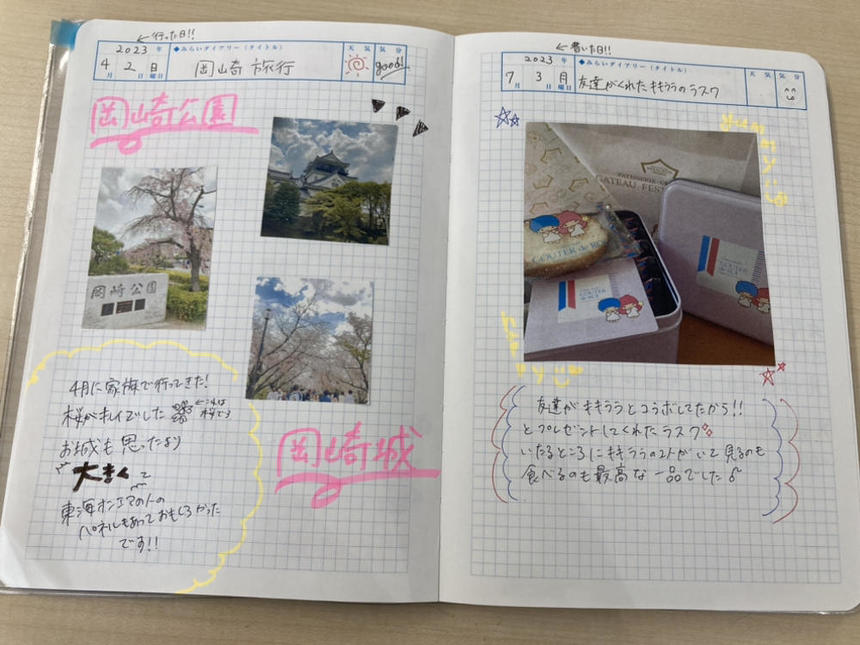 ←行った日!!
2023 年 ◆みらいダイアリー(タイトル) 天気 気分
4月 2日 日曜日 岡崎 旅行 good!
岡崎公園
岡崎公園
4月に家族で行ってきた!
桜がキレイでした ←これは桜です
お城も思ったより
大きくて
東海オンエアの人の
パネルもあっておもしろかった
です!!
岡崎城
←書いた日!!
2023 年 ◆みらいダイアリー(タイトル) 天気 気分
7月 3日 月曜日 友達がくれたキキララのラスク
GATEAU FES
GOUTER de
友達がキキララとコラボしてたから!!
とプレゼントしてくれたラスク
いたるところにキキララの2人がいて見るのも
食べるのも最高な一品でした♪